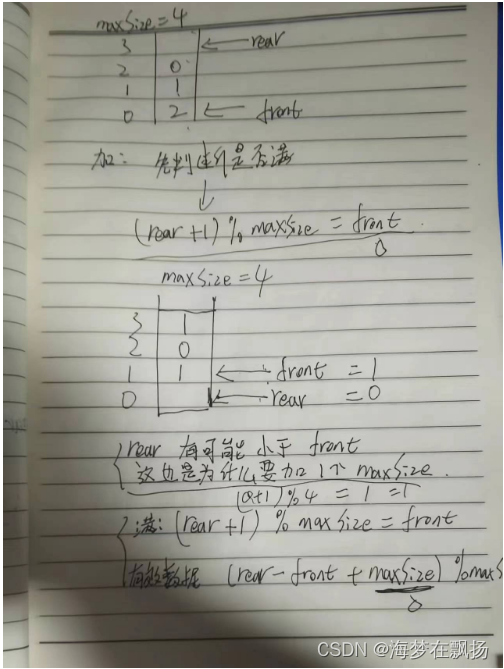 maxSize=4
3 ← rear
2 0
1 1
0 2 ← front
加: 先判断队列是否满
↓
(rear+1) % maxSize = front
0
maxSize=4
3 1
2 0
1 1 ← front = 1
0 ← rear = 0
rear 有可能 小于 front
这也是为什么要加1个 maxSize.
(0+1) % 4 = 1 = 1
满: (rear+1) % maxSize = front
有效数据 (rear - front + maxSize) % maxS
0
CSDN @海梦在飘扬